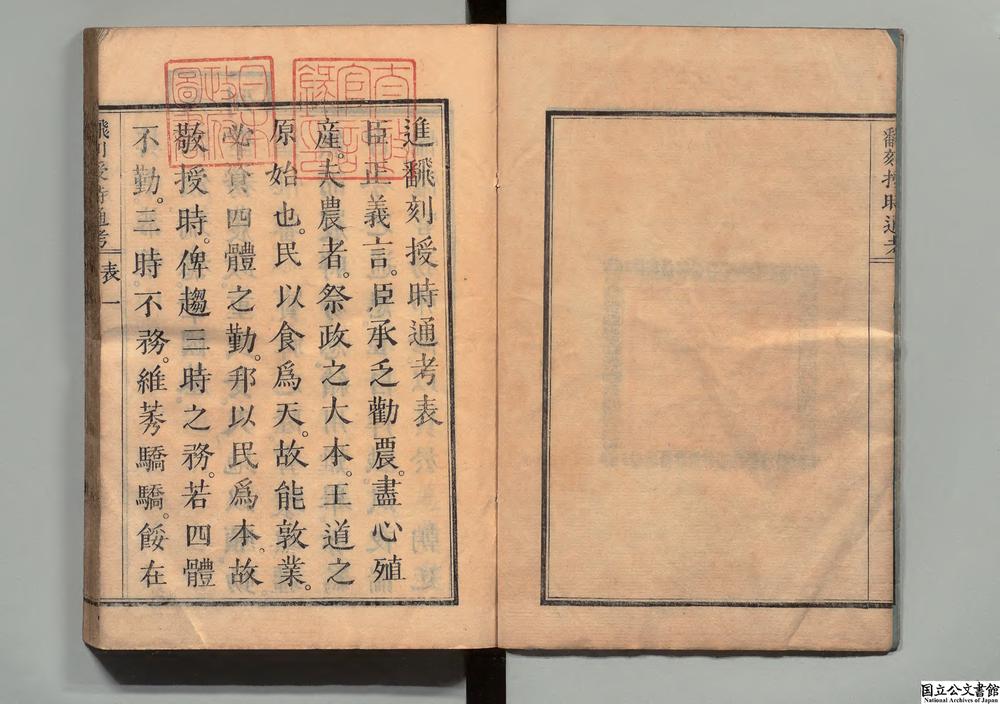 翻刻授時通考
進飜刻授時通考表
臣正義言。臣承乏勸農。盡心殖
産。夫農者。祭政之大本。王道之
原始也。民以食爲天。故能敦業。
必資四體之勤。邦以民爲本。故
敬授時。俾趨三時之務。若四體
不勤。三時不務。維莠驕驕。餒在
飜刻授時通考 表 一
太政官記錄印
日本政府圖書
国立公文書館
National Archives of Japan